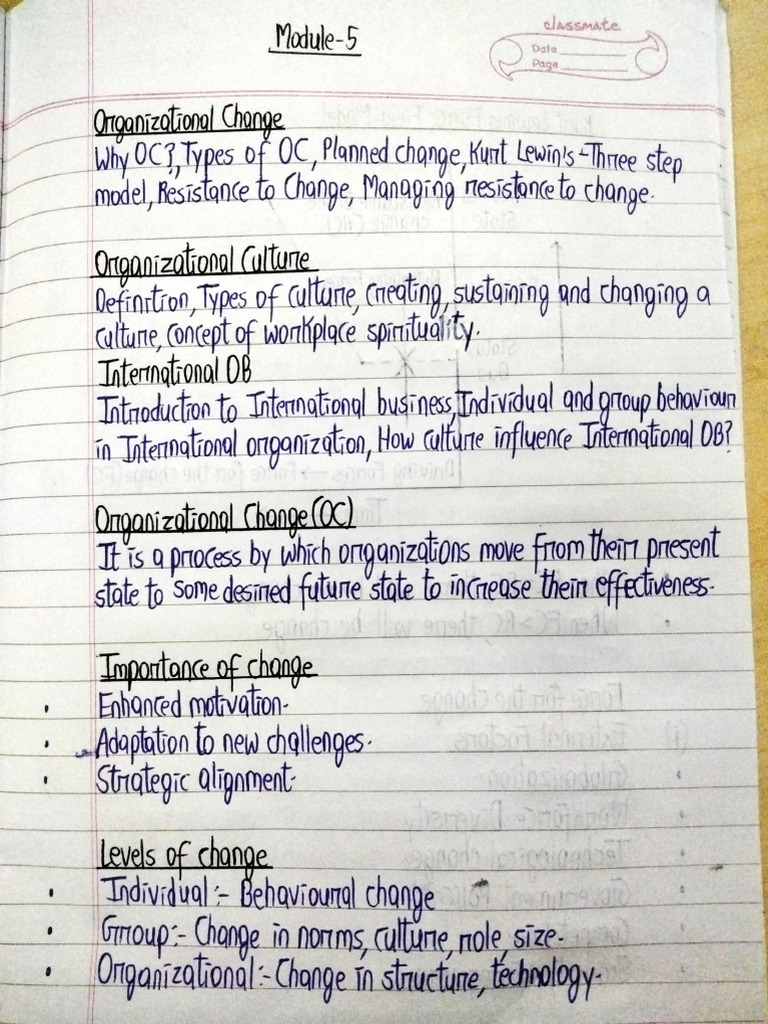 Module-5
classmate
Date
Page
Organizational Change
Why OC?, Types of OC, Planned change, Kurt Lewin's-Three step
model, Resistance to Change, Managing resistance to change.
Organizational Culture
Definition, Types of culture, creating, sustaining and changing a
culture, concept of workplace spirituality.
International OB
Introduction to International business, Individual and group behaviour
in International organization, How culture influence International OB?
Organizational Change (OC)
It is a process by which organizations move from their present
state to some desired future state to increase their effectiveness.
Importance of change
• Enhanced motivation.
• Adaptation to new challenges.
• Strategic alignment.
Levels of change
• Individual :- Behavioural change
• Group:- Change in norms, culture, role, size.
• Organizational:- Change in structure, technology.